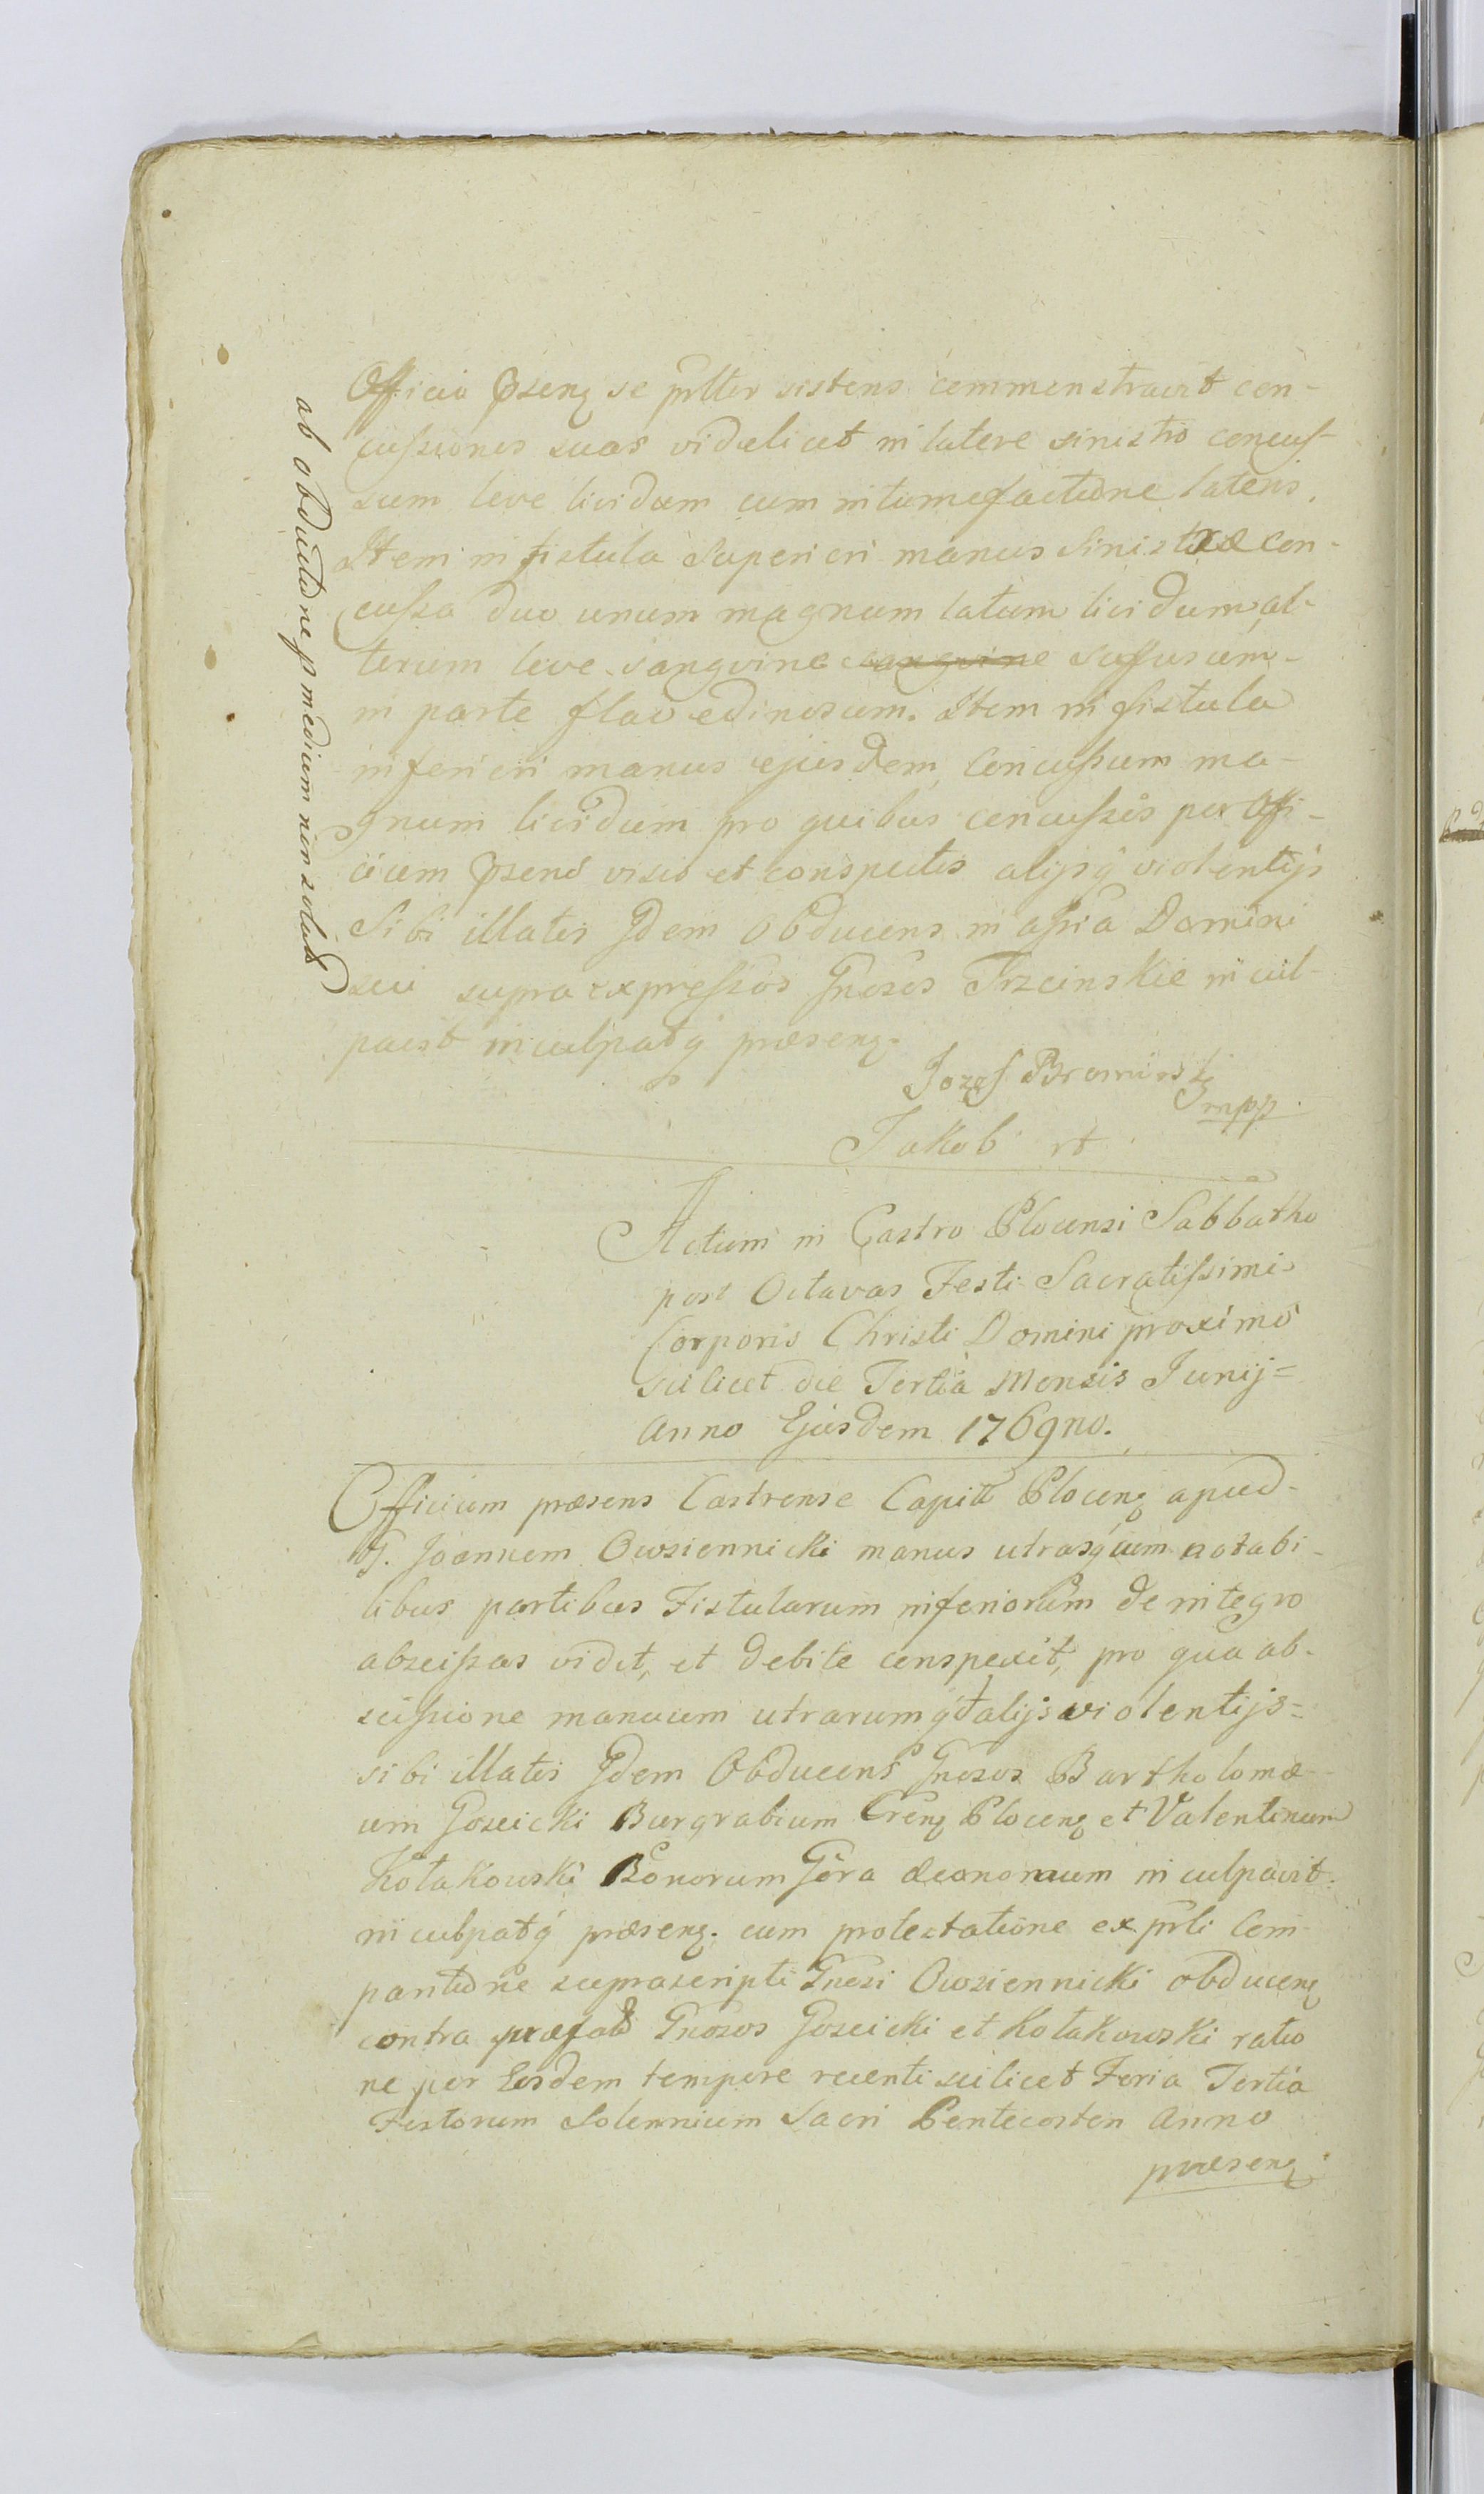 Officio Pseng se prlter sistens commonstravit con-
cuſsiones suas videlicet in latere sinistro concuſ-
sum leve lividum cum intumefactione lateris.
Item in fistula superiori manus sinistræ con-
cuſsa duo unum magnum latum lividum, al-
terum leve sangvine sangvine suffusum
in parte flavedinosum. Item in fistula
inferiori manus ejusdem concuſsum ma-
gnum lividum pro quibus concuſsis per Offi-
cium Psens visis et conspectis alijsq violentijs
Sibi illatis Idem Obducens in aſsia Domini
sui supra expreſsos Gnosos Trzcinskie incul-
pavit inculpatq præseng.
Jozef Bromirski
mpp.
Jakob rt
ab obductione p medium non solut
Actum in Castro Plocensi Sabbatho
post Octavas Festi Sacratiſsimi
Corporis Christi Domini proximo
scilicet die Tertia Mensis Junij=
Anno Ejusdem 1769no.
Officium præsens Castrense Capitt Ploceng apud
G. Joannem Owsiennicki manus utrasq cum notabi-
libus partibus Fistularum inferiorum de integro
absciſsas vidit, et debite conspexit, pro qua ab-
sciſsione manuum utrarumq t alijs violentijs=
sibi illatis Idem Obducens Gnosos Bartholomæ-
um Goscicki Burgrabium Creng Ploceng et Valentinum
Kołakowski Bonorum Góra Œconomum inculpavit
inculpatq præseng. cum protestatione ex prli Com-
paritione suprascripti Gnosi Owsiennicki obduceng
contra præfat Gnosos Goscicki et Kołakowski ratio
ne per Eosdem tempore recenti scilicet Feria Tertia
Festorum Solennium Sacri Pentecosten Anno
præseng